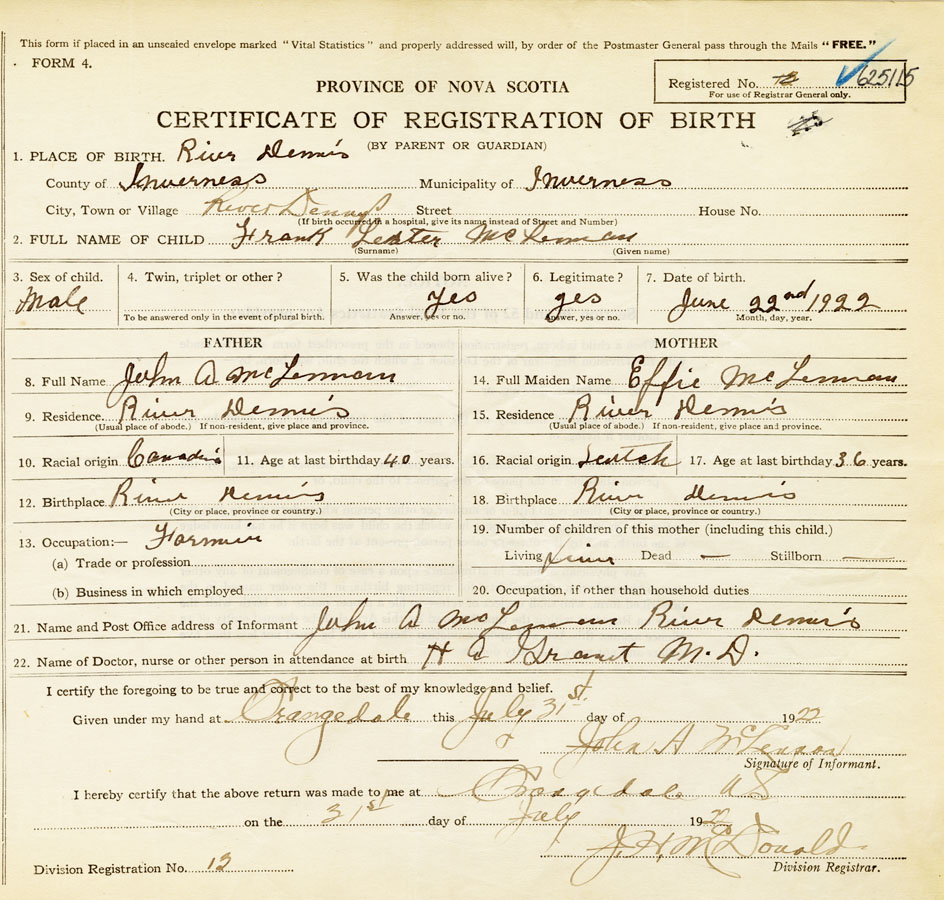 This form if placed in an unsealed envelope marked "Vital Statistics" and properly addressed will, by order of the Postmaster General pass through the Mails "FREE."
FORM 4.
Registered No. 62515
For use of Registrar General only.
PROVINCE OF NOVA SCOTIA
CERTIFICATE OF REGISTRATION OF BIRTH
(BY PARENT OR GUARDIAN)
1. PLACE OF BIRTH. River Dennis
County of Inverness Municipality of Inverness
City, Town or Village River Dennys Street House No.
(If birth occurred in a hospital, give its name instead of Street and Number)
2. FULL NAME OF CHILD Frank Lester McLennan
(Surname) (Given name)
3. Sex of child. 4. Twin, triplet or other? 5. Was the child born alive? 6. Legitimate? 7. Date of birth.
Male yes yes June 22nd 1922
To be answered only in the event of plural birth. Answer, yes or no. Answer, yes or no. Month, day, year.
FATHER
8. Full Name John A McLennan
9. Residence. River Dennis
(Usual place of abode.) If non-resident, give place and province.
10. Racial origin 11. Age at last birthday 40 years.
12. Birthplace River Dennis
(City or place, province or country.)
13. Occupation:—
(a) Trade or profession
(b) Business in which employed
MOTHER
14. Full Maiden Name Effie McLennan
15. Residence River Dennis
(Usual place of abode.) If non-resident, give place and province.
16. Racial origin Scotch 17. Age at last birthday 36 years.
18. Birthplace River Dennis
(City or place, province or country.)
19. Number of children of this mother (including this child.)
Living Dead — Stillborn —
20. Occupation, if other than household duties
21. Name and Post Office address of Informant John A McLennan River Dennis
22. Name of Doctor, nurse or other person in attendance at birth H A Grant M.D.
I certify the foregoing to be true and correct to the best of my knowledge and belief.
Given under my hand at Orangedale this July 31st day of 1922
John A McLennan
Signature of Informant.
I hereby certify that the above return was made to me at Orangedale NS
on the 31st day of July 1922
J. H. McDonald
Division Registrar.
Division Registration No. 13